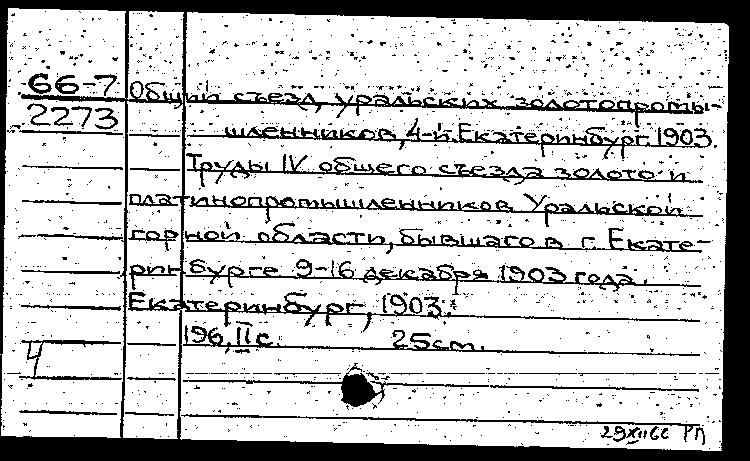 66-7
2273
Общий съезд уральских золотопромы-
шленников, 4-й. Екатеринбург. 1903.
Труды IV общего съезда золото- и
платинопромышленников Уральской
горной области, бывшаго в г. Екате-
ринбурге 9-16 декабря 1903 года.
Екатеринбург, 1903.
196, II с. 25 cm.
4
29 XII 66 РП